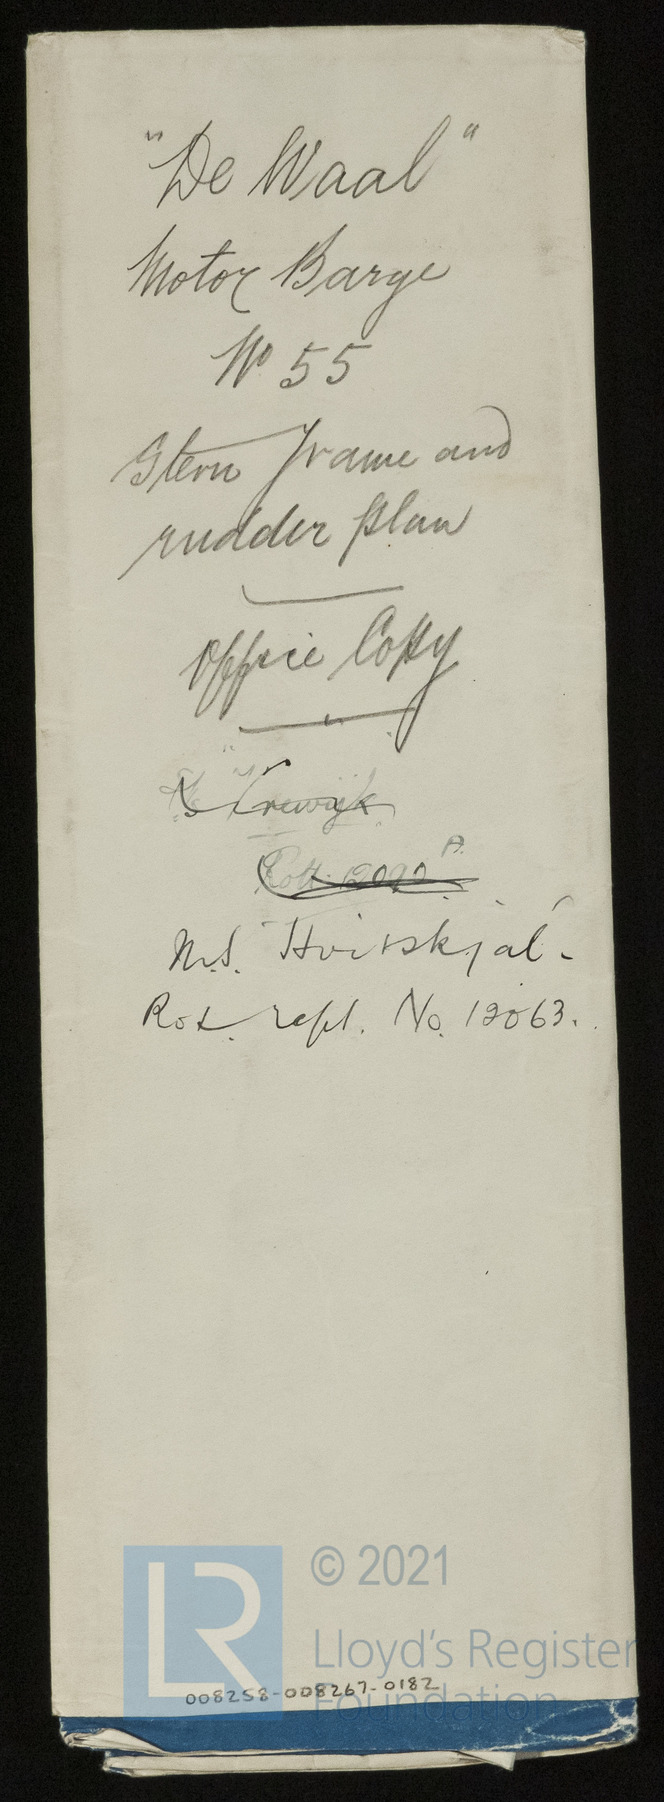 "De Waal"
Motor Barge
No 55
Stern Frame and
rudder plan
Office Copy
Rott. 12090 A.
M.S. Hvitskjal.
Rot. rept. No. 12063.
LR
© 2021
Lloyd's Register
Foundation
008258-008267-0182